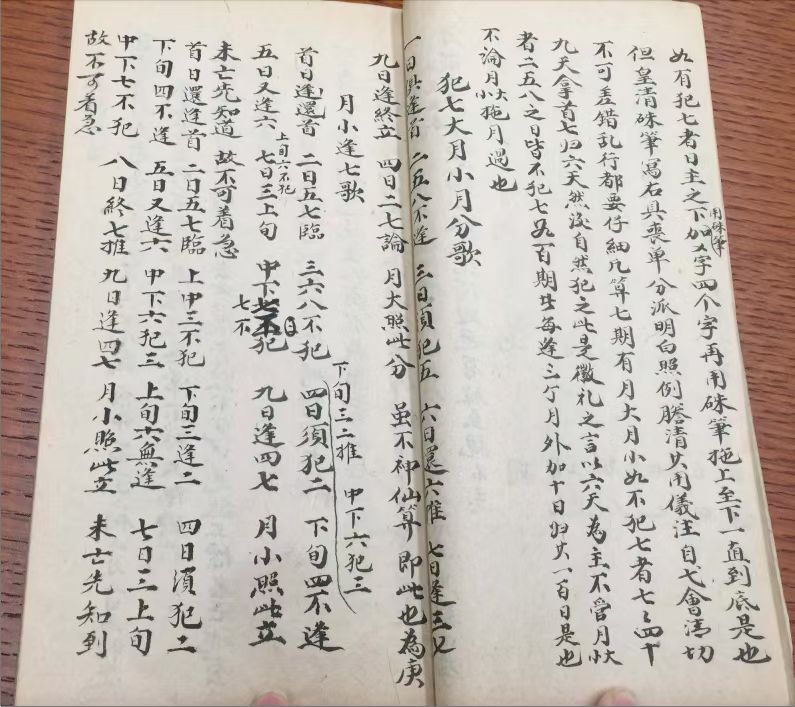 如有犯七者日主之下加用硃筆乂字四个字再用硃筆拖上至下一直到底是也
但皇清硃筆寫右具喪单分派明白照例謄清其用儀注自弋會清切
不可差錯乱行都要仔細凡算七期有月大月小如不犯七者七七四十
九天拿首七归六天然後自然犯之此是徽礼之言以六天為主不管月大小
者二五八之日皆不犯七如百期毎逢三个月外加十日归共一百日是也
不論月大小拖月過也
犯七大月小月分歌
一日供逢首 二五八不逢 三日須犯五 六日還六推 七日逢三七
九日逢終立 四日二七論 月大照此分 虽不神仙算 即此也為庚
月小逢七歌
首日逢還首 二日五七臨 三六八不犯 四日須犯二 下旬四不逢
下旬三二推 中下六犯三
上旬六不犯
五日又逢六 七日三上旬 中下七不犯 九日逢四七 月小照此立
七不
未亡先知道 故不可着急
首日還逢首 二日五七臨 上中三不犯 下旬三逢二 四日須犯二
下旬四不逢 五日又逢六 中下六犯三 上旬六無逢 七日三上旬
中下七不犯 八日終七推 九日逢四七 月小照此立 未亡先知到
故不可着急